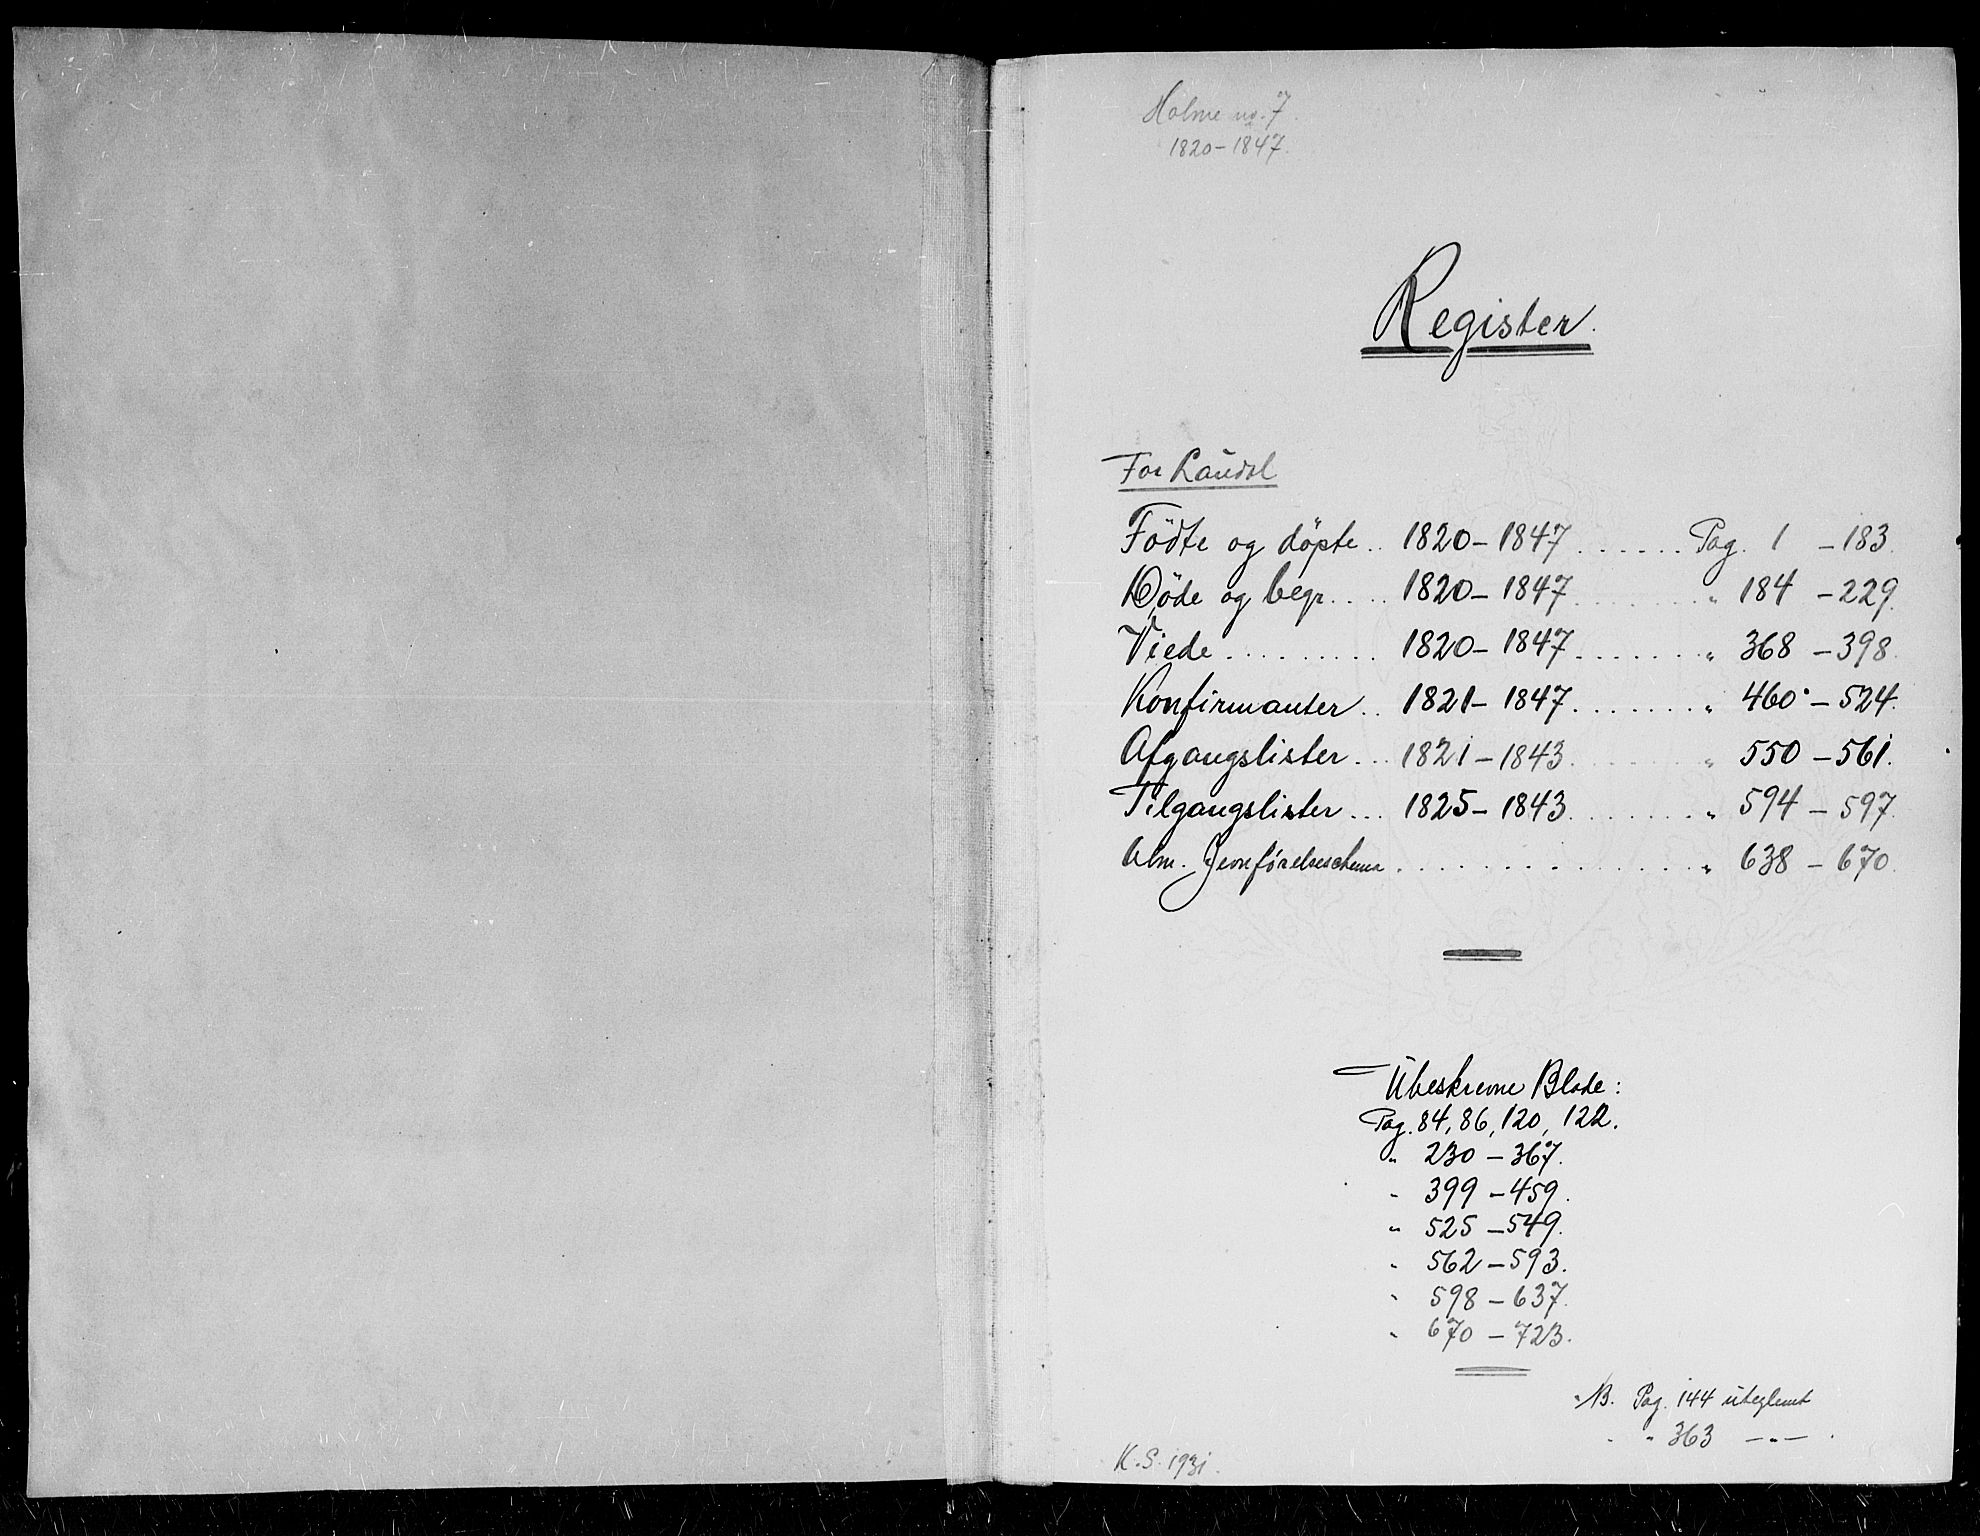 Holme no. 7.
1820-1847.
Register.
For Laudal
Födte og döpte.. 1820-1847...... Pag. 1 -183.
Døde og begr.... 1820-1847....... " 184 -229.
Viede......... 1820-1847....... " 368 -398.
Konfirmanter.. 1821-1847....... " 460 -524.
Afgangslister... 1821-1843....... " 550 -561.
Tilgangslister... 1825-1843....... " 594 -597.
Alm. Jevnførelseschema................ " 638 -670.
Ubeskrevne Blade:
Pag. 84, 86, 120, 122.
" 230-367.
" 399-459.
" 525-549.
" 562-593.
" 598-637.
" 670-723.
NB. Pag. 144 uteglemt
" " 363 -"-.
K.S. 1931.